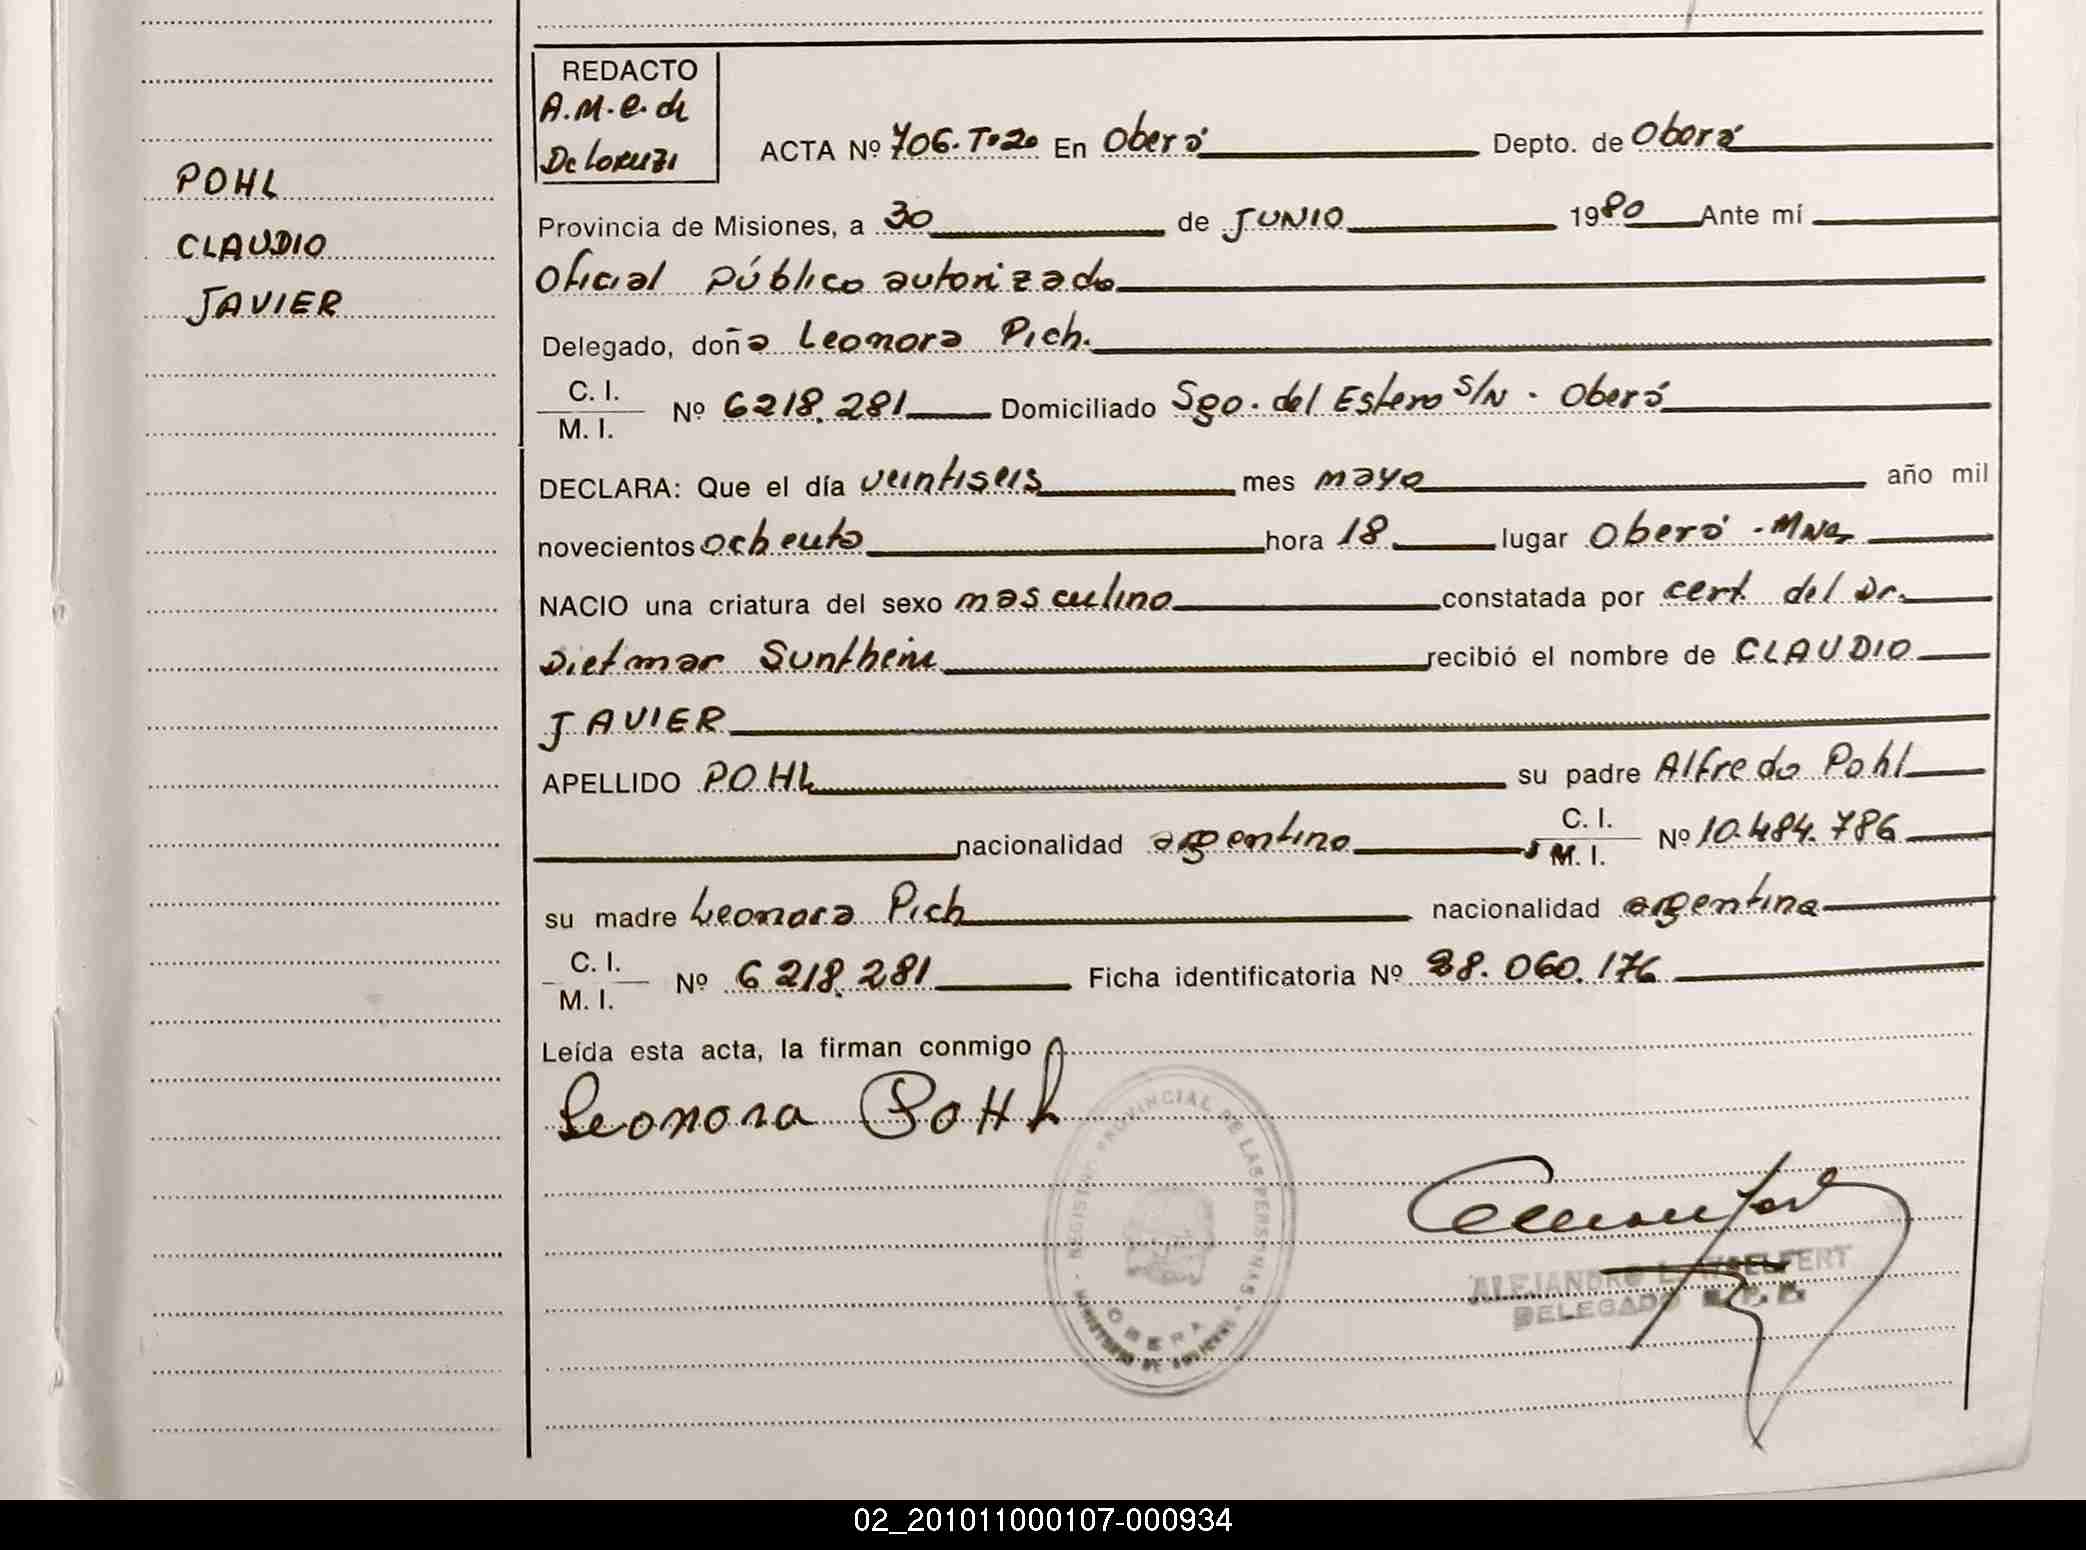 POHL
CLAUDIO
JAVIER
REDACTO
A.M.e. de
De Lorenzi
ACTA Nº 706. Tº 20 En Oberá Depto. de Oberá
Provincia de Misiones, a 30 de JUNIO 1980 Ante mí
Oficial Público autorizado
Delegado, doña Leonora Pich.
C. I.
M. I. Nº 6218.281 Domiciliado Sgo. del Estero S/N - Oberá
DECLARA: Que el día veintiseis mes mayo año mil
novecientos ochenta hora 18 lugar Oberá - Mnes
NACIO una criatura del sexo masculino constatada por cert. del Dr.
Dietmar Sunthein recibió el nombre de CLAUDIO
JAVIER
APELLIDO POHL su padre Alfredo Pohl
nacionalidad argentino C. I.
M. I. Nº 10.484.786
su madre Leonora Pich nacionalidad argentina
C. I.
M. I. Nº 6218.281 Ficha identificatoria Nº 28.060.176
Leída esta acta, la firman conmigo
Leonora PoHl
REGISTRO PROVINCIAL DE LAS PERSONAS
OBERA
MINISTERIO DE GOBIERNO
ALEJANDRO L.
DELEGADO R.P.P.
02_201011000107-000934